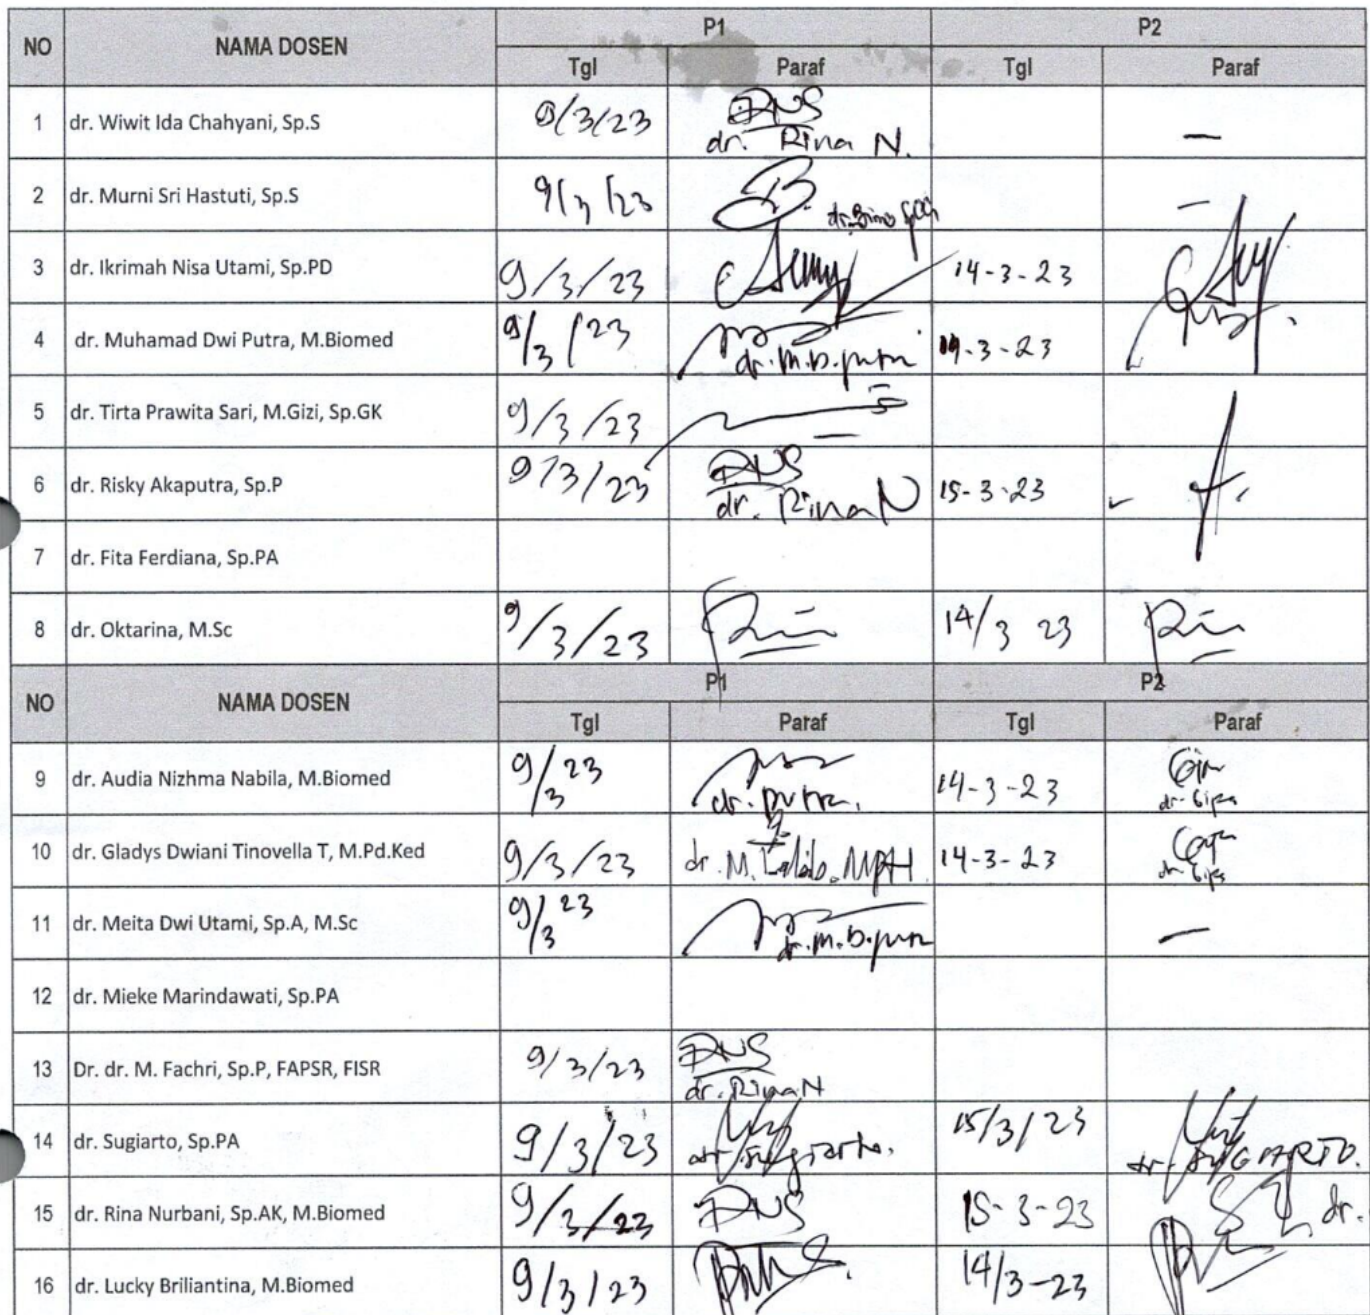 NO NAMA DOSEN P1 P2
Tgl Paraf Tgl Paraf
1 dr. Wiwit Ida Chahyani, Sp.S 9/3/23 dr. Rina N. —
2 dr. Murni Sri Hastuti, Sp.S 9/3/23 —
3 dr. Ikrimah Nisa Utami, Sp.PD 9/3/23 14-3-23
4 dr. Muhamad Dwi Putra, M.Biomed 9/3/23 dr. M.D. putra 14-3-23
5 dr. Tirta Prawita Sari, M.Gizi, Sp.GK 9/3/23 —
6 dr. Risky Akaputra, Sp.P 9/3/23 dr. Rina N 15-3-23
7 dr. Fita Ferdiana, Sp.PA
8 dr. Oktarina, M.Sc 9/3/23 14/3 23
NO NAMA DOSEN P1 P2
Tgl Paraf Tgl Paraf
9 dr. Audia Nizhma Nabila, M.Biomed 9/3 23 dr. putra. 14-3-23
10 dr. Gladys Dwiani Tinovella T, M.Pd.Ked 9/3/23 dr. M. MPH 14-3-23
11 dr. Meita Dwi Utami, Sp.A, M.Sc 9/3 23 dr. M.D. putra —
12 dr. Mieke Marindawati, Sp.PA
13 Dr. dr. M. Fachri, Sp.P, FAPSR, FISR 9/3/23 dr. Rina N
14 dr. Sugiarto, Sp.PA 9/3/23 dr. Sugiarto. 15/3/23 dr. SUGIARTO.
15 dr. Rina Nurbani, Sp.AK, M.Biomed 9/3/23 15-3-23 dr.
16 dr. Lucky Briliantina, M.Biomed 9/3/23 14/3-23